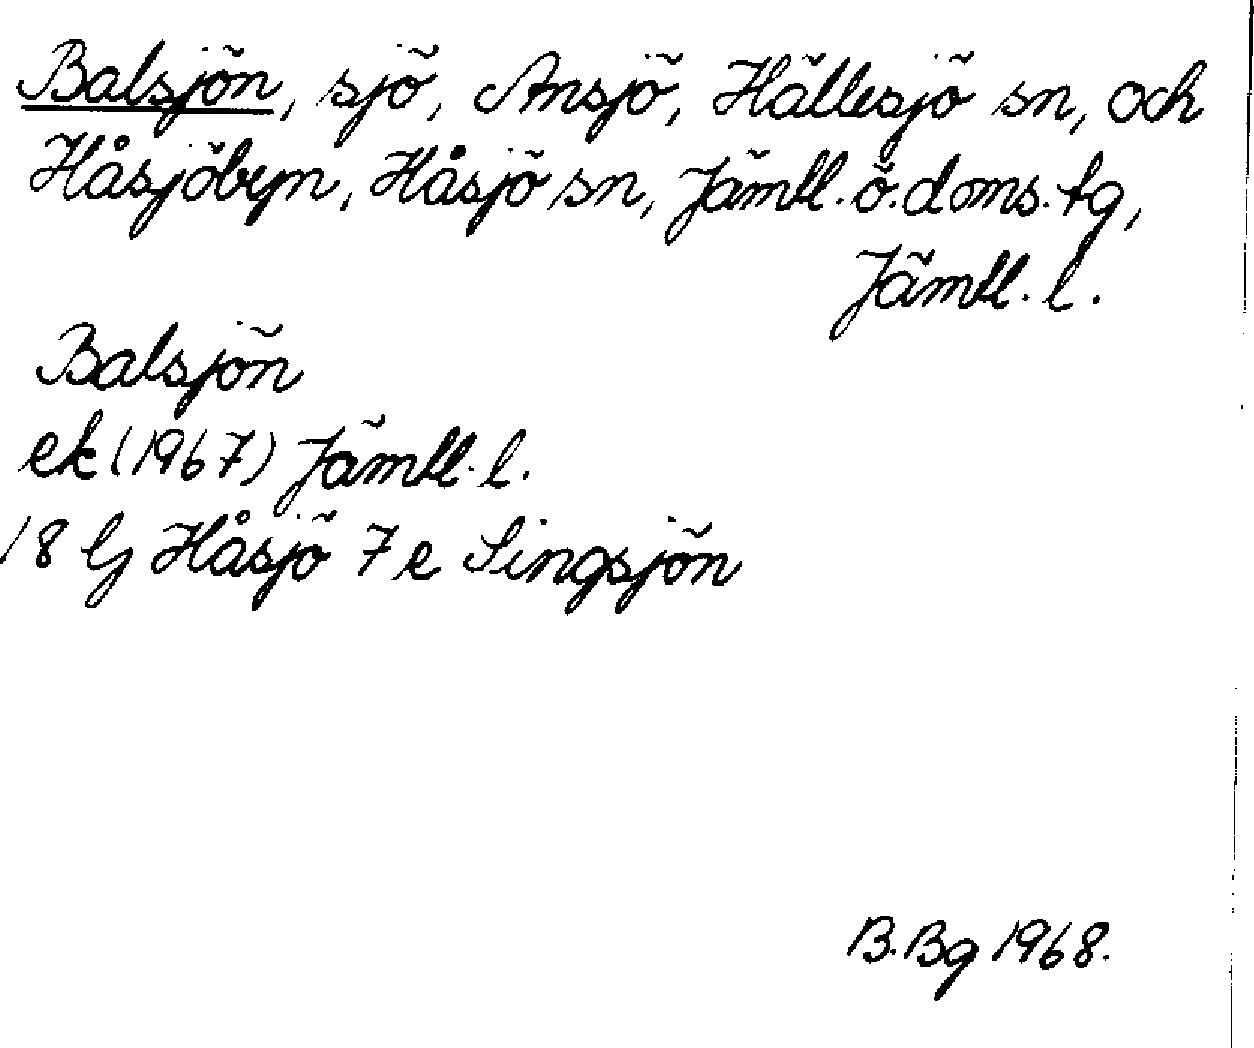 Balsjön, sjö, Ansjö, Hällesjö sn, och
Håsjöbyn, Håsjö sn, Jämtl. ö. doms. tg,
Jämtl. l.
Balsjön
ek (1967) Jämtl. l.
18 G Håsjö 7 e Singsjön
B. Bg 1968.